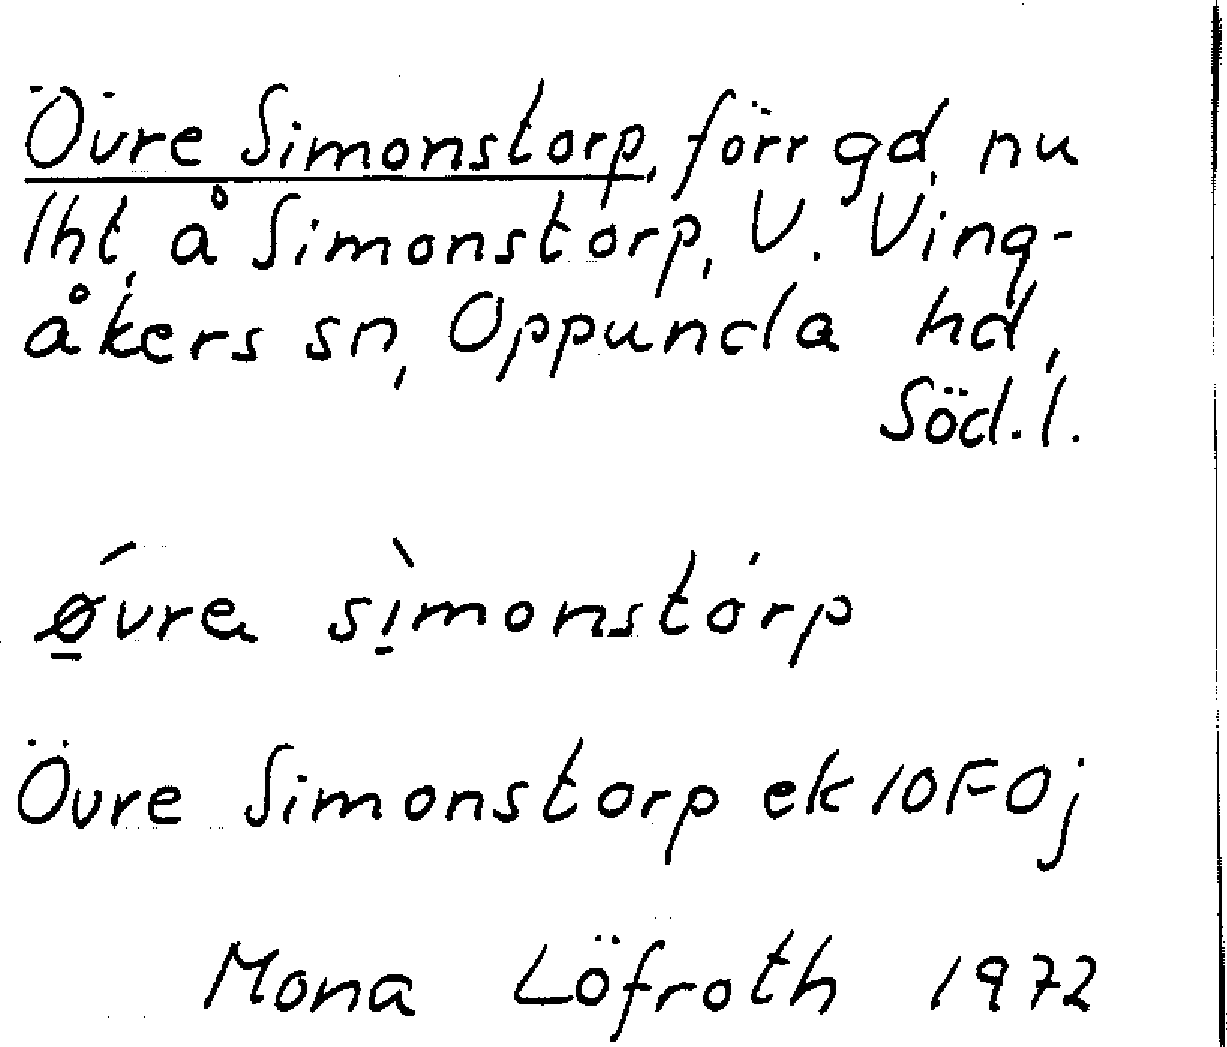 Övre Simonstorp, förr gd, nu
lht, å Simonstorp, V. Ving-
åkers sn, Oppunda hd,
Söd. l.
ǿ̲vrɐ sì̲monstórp
Övre Simonstorp ek 10F0j
Mona Löfroth 1972